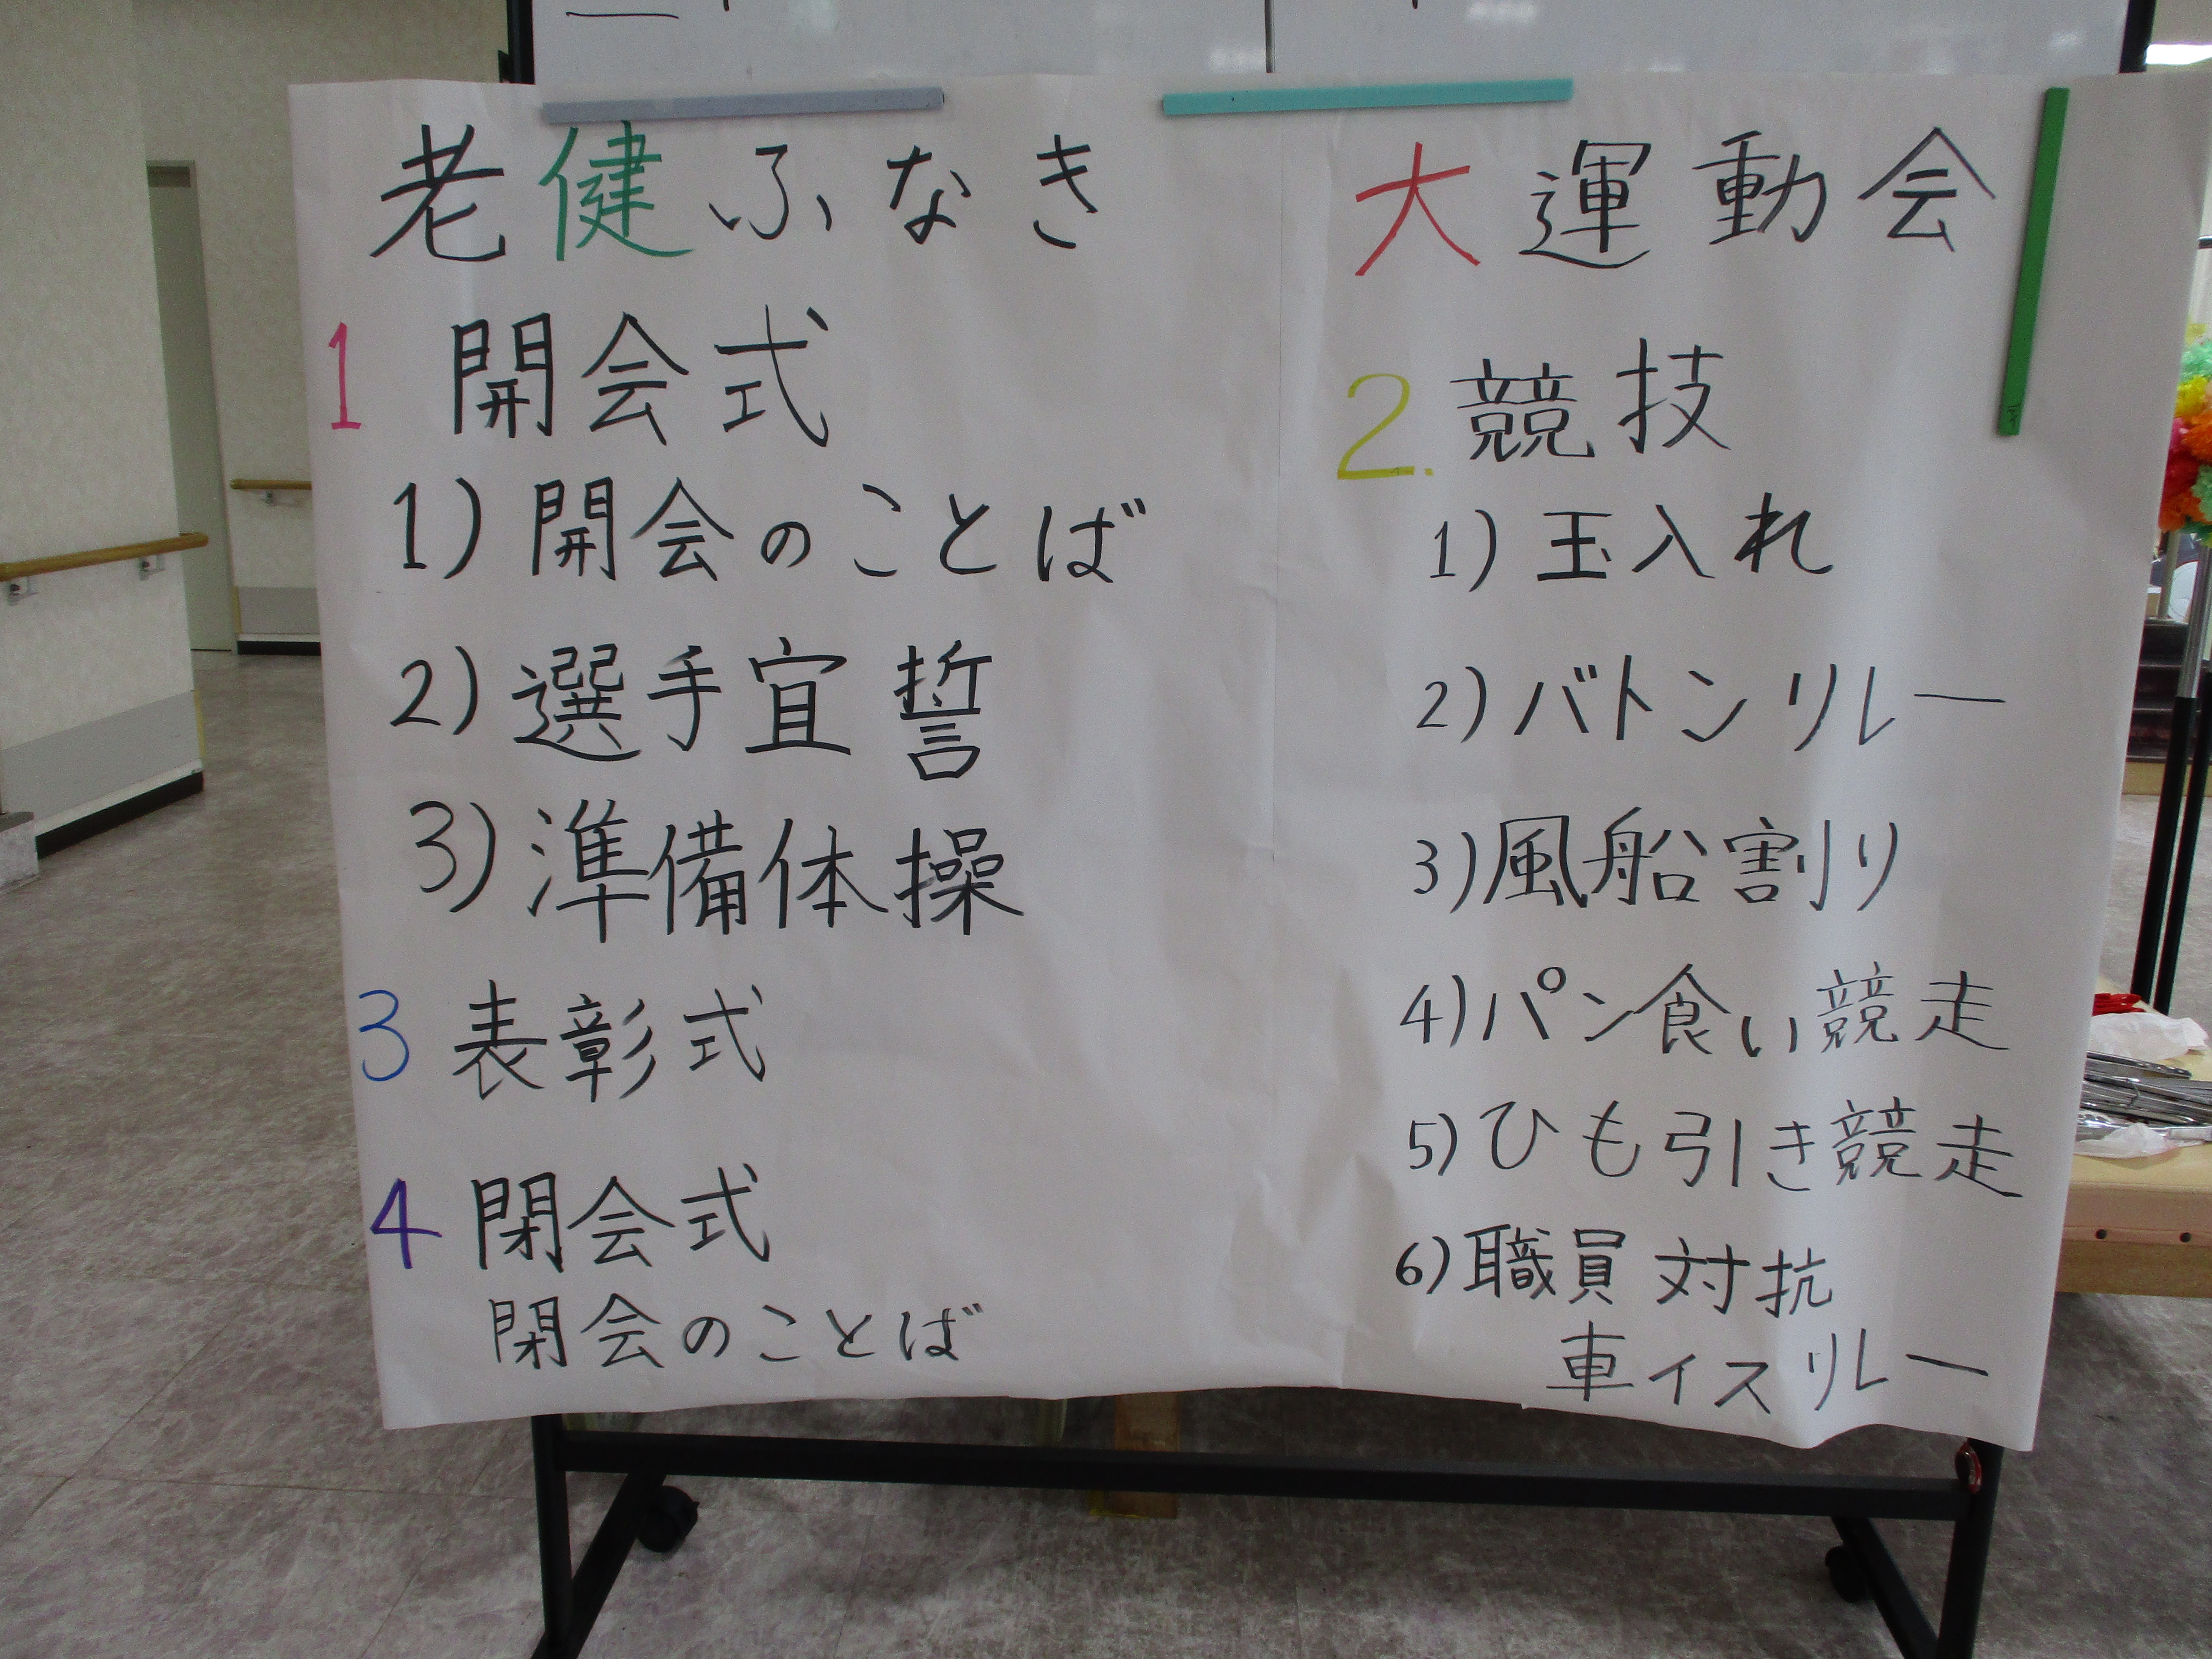 老健ふなき 大運動会
1 開会式
1) 開会のことば
2) 選手宜誓
3) 準備体操
2. 競技
1) 玉入れ
2) バトンリレー
3) 風船割り
4) パン食い競走
5) ひも引き競走
6) 職員対抗
車イスリレー
3 表彰式
4 閉会式
閉会のことば